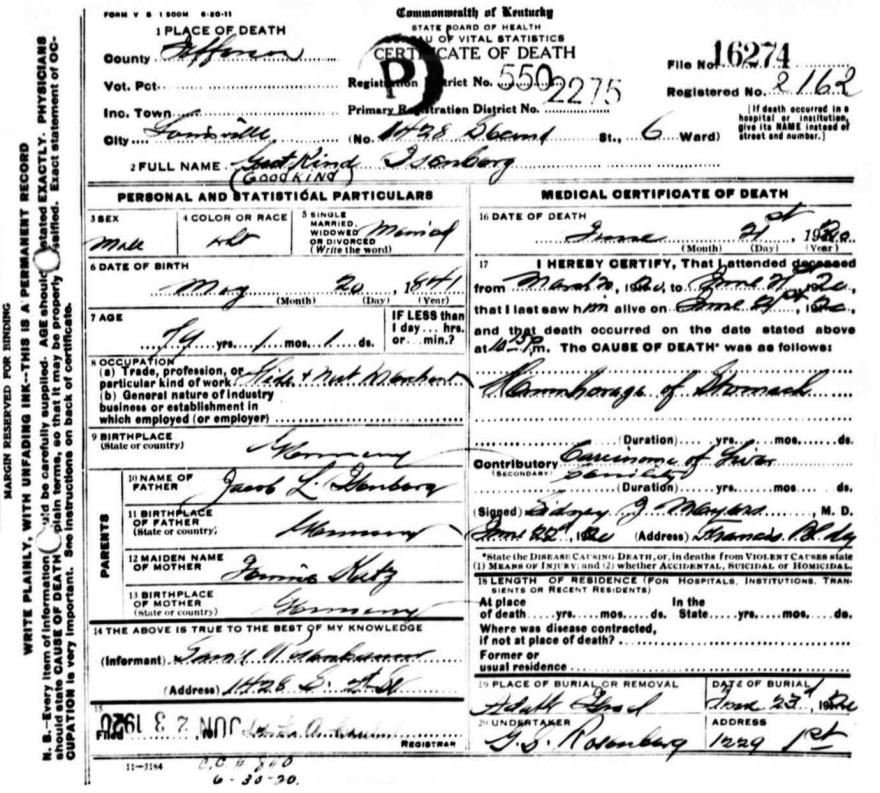 FORM V S 1 500M 6-20-11
Commonwealth of Kentucky
STATE BOARD OF HEALTH
BUREAU OF VITAL STATISTICS
CERTIFICATE OF DEATH
1 PLACE OF DEATH
County Jefferson
File No. 16274
Vot. Pct.
Registration District No. 550
Registered No. 2162
Inc. Town
Primary Registration District No. 2275
[If death occurred in a hospital or institution, give its NAME instead of street and number.]
City Louisville (No. 1428 Second St., 6 Ward)
2 FULL NAME Gut Kind Isenberg
(GOODKIND)
PERSONAL AND STATISTICAL PARTICULARS
3 SEX
Male
4 COLOR OR RACE
wht
5 SINGLE MARRIED, WIDOWED OR DIVORCED (Write the word)
Married
6 DATE OF BIRTH
May 20 1841
(Month) (Day) (Year)
7 AGE
79 yrs. 1 mos. 1 ds.
IF LESS than 1 day... hrs. or... min.?
8 OCCUPATION
(a) Trade, profession, or particular kind of work Hide +
(b) General nature of industry business or establishment in which employed (or employer)
9 BIRTHPLACE (State or country)
Germany
PARENTS
10 NAME OF FATHER Jacob L. Isenberg
11 BIRTHPLACE OF FATHER (State or country) Germany
12 MAIDEN NAME OF MOTHER Fannie
13 BIRTHPLACE OF MOTHER (State or country) Germany
14 THE ABOVE IS TRUE TO THE BEST OF MY KNOWLEDGE
(Informant) Rosenbaum
(Address) 1428 S. 2d St
15
Filed JUN 23 1920
REGISTRAR
11-3184
6-30-20.
MEDICAL CERTIFICATE OF DEATH
16 DATE OF DEATH
June 21st, 1920
(Month) (Day) (Year)
17 I HEREBY CERTIFY, That I attended deceased
from March 20, 1920, to June 21st 1920
that I last saw him alive on June 21st, 1920
and that death occurred on the date stated above
at 10:15 P.m. The CAUSE OF DEATH* was as follows:
Hemmhorage of Stomach
(Duration) yrs. mos. ds.
Contributory Carcinoma of Liver
(SECONDARY) Senility
(Duration) yrs. mos. ds.
(Signed) Sidney J Meyers, M. D.
June 22nd, 1920 (Address) Francis Bldg
*State the DISEASE CAUSING DEATH, or, in deaths from VIOLENT CAUSES state
(1) MEANS OF INJURY; and (2) whether ACCIDENTAL, SUICIDAL or HOMICIDAL.
18 LENGTH OF RESIDENCE (FOR HOSPITALS, INSTITUTIONS, TRANSIENTS OR RECENT RESIDENTS)
At place of death yrs. mos. ds. In the State yrs. mos. ds.
Where was disease contracted, if not at place of death?
Former or usual residence
19 PLACE OF BURIAL OR REMOVAL
Adath Israel
DATE OF BURIAL
June 23d, 1920
20 UNDERTAKER
G. S. Rosenberg
ADDRESS
1229 1st
MARGIN RESERVED FOR BINDING
WRITE PLAINLY, WITH UNFADING INK--THIS IS A PERMANENT RECORD
N. B.--Every item of information should be carefully supplied. AGE should be stated EXACTLY. PHYSICIANS
should state CAUSE OF DEATH in plain terms, so that it may be properly classified. Exact statement of OC-
CUPATION is very important. See instructions on back of certificate.